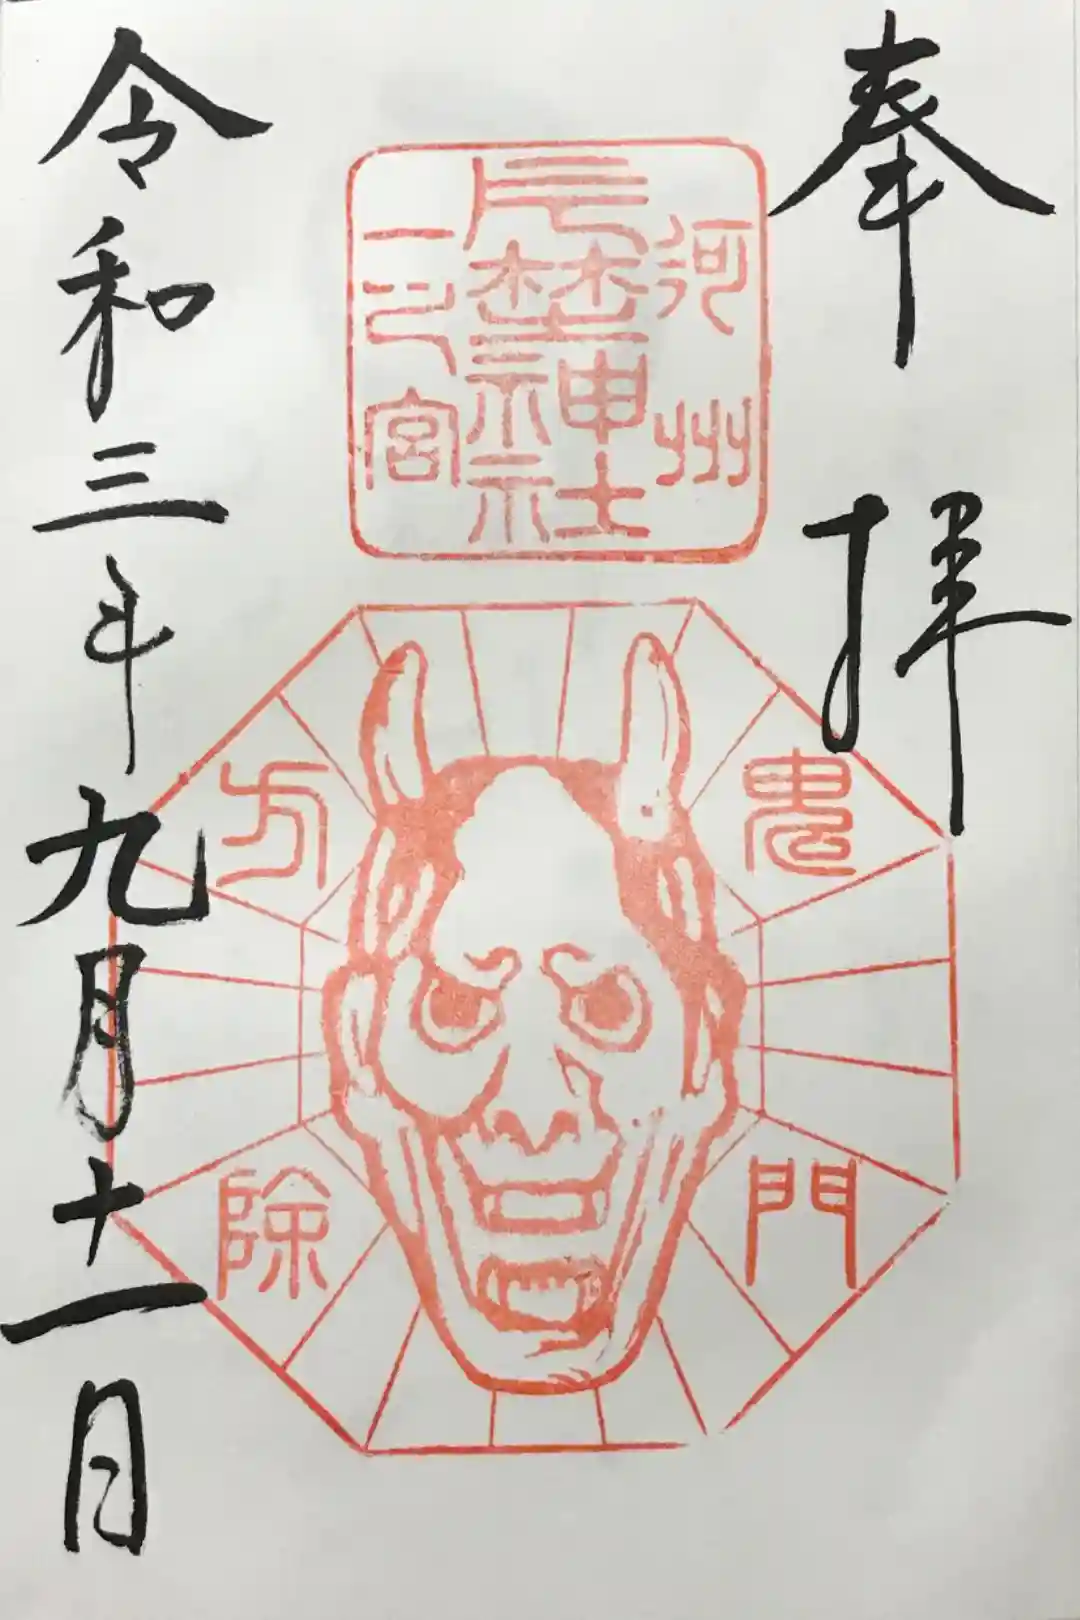 奉拝
河州
片埜神社
一之宮
鬼門
方除
令和三年九月十一日